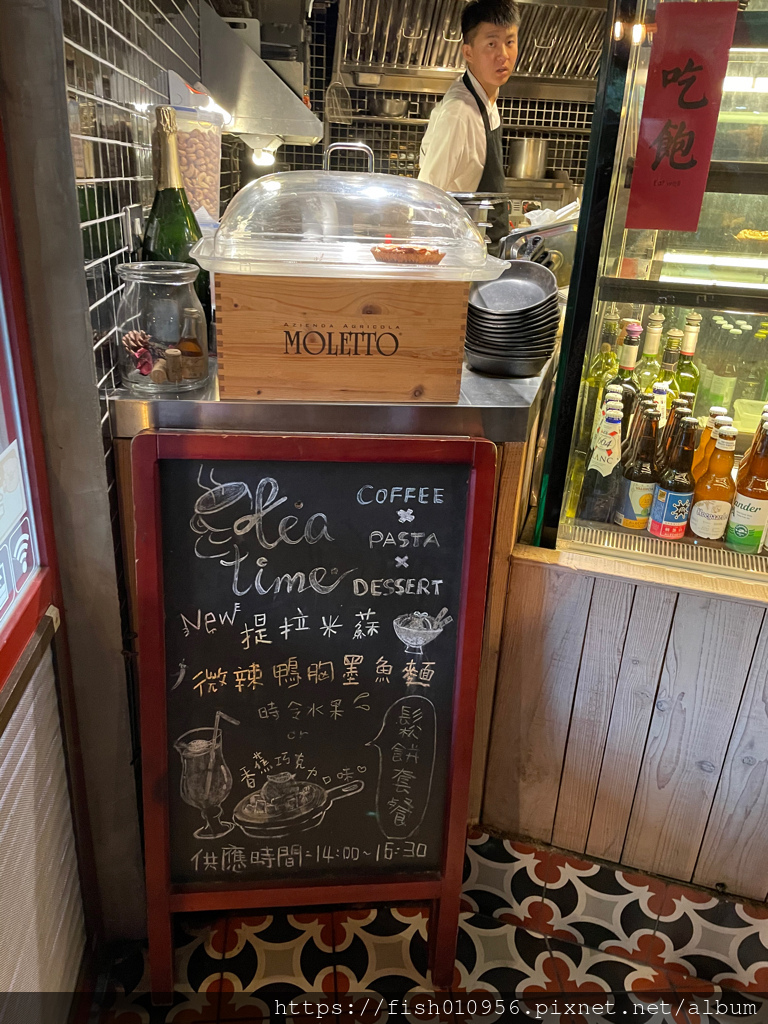 吃飽
AZIENDA AGRICOLA
MOLETTO
BLANC
Tea time
COFFEE
×
PASTA
×
DESSERT
New 提拉米蘇
微辣鴨胸墨魚麵
時令水果
or
香蕉巧克力口味
鬆餅套餐
供應時間:14:00~16:30
https://fish010956.pixnet.net/album